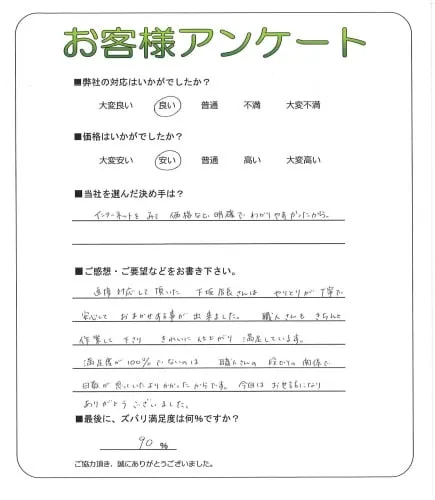 お客様アンケート
■弊社の対応はいかがでしたか？
大変良い 良い 普通 不満 大変不満
■価格はいかがでしたか？
大変安い 安い 普通 高い 大変高い
■当社を選んだ決め手は？
インターネットをみて 価格など明確で わかりやすかったから。
■ご感想・ご要望などをお書き下さい。
直接対応して頂いた 下坂店長さんは やりとりが丁寧で
安心して おまかせする事が出来ました。 職人さんも きちんと
作業して下さり きれいに仕上がり 満足しています。
満足度が100%でないのは 職人さんの 段どりの関係で
日数が思っていたよりかかったからです。 今回は お世話になり
ありがとうございました。
■最後に、ズバリ満足度は何％ですか？
90 %
ご協力頂き、誠にありがとうございました。